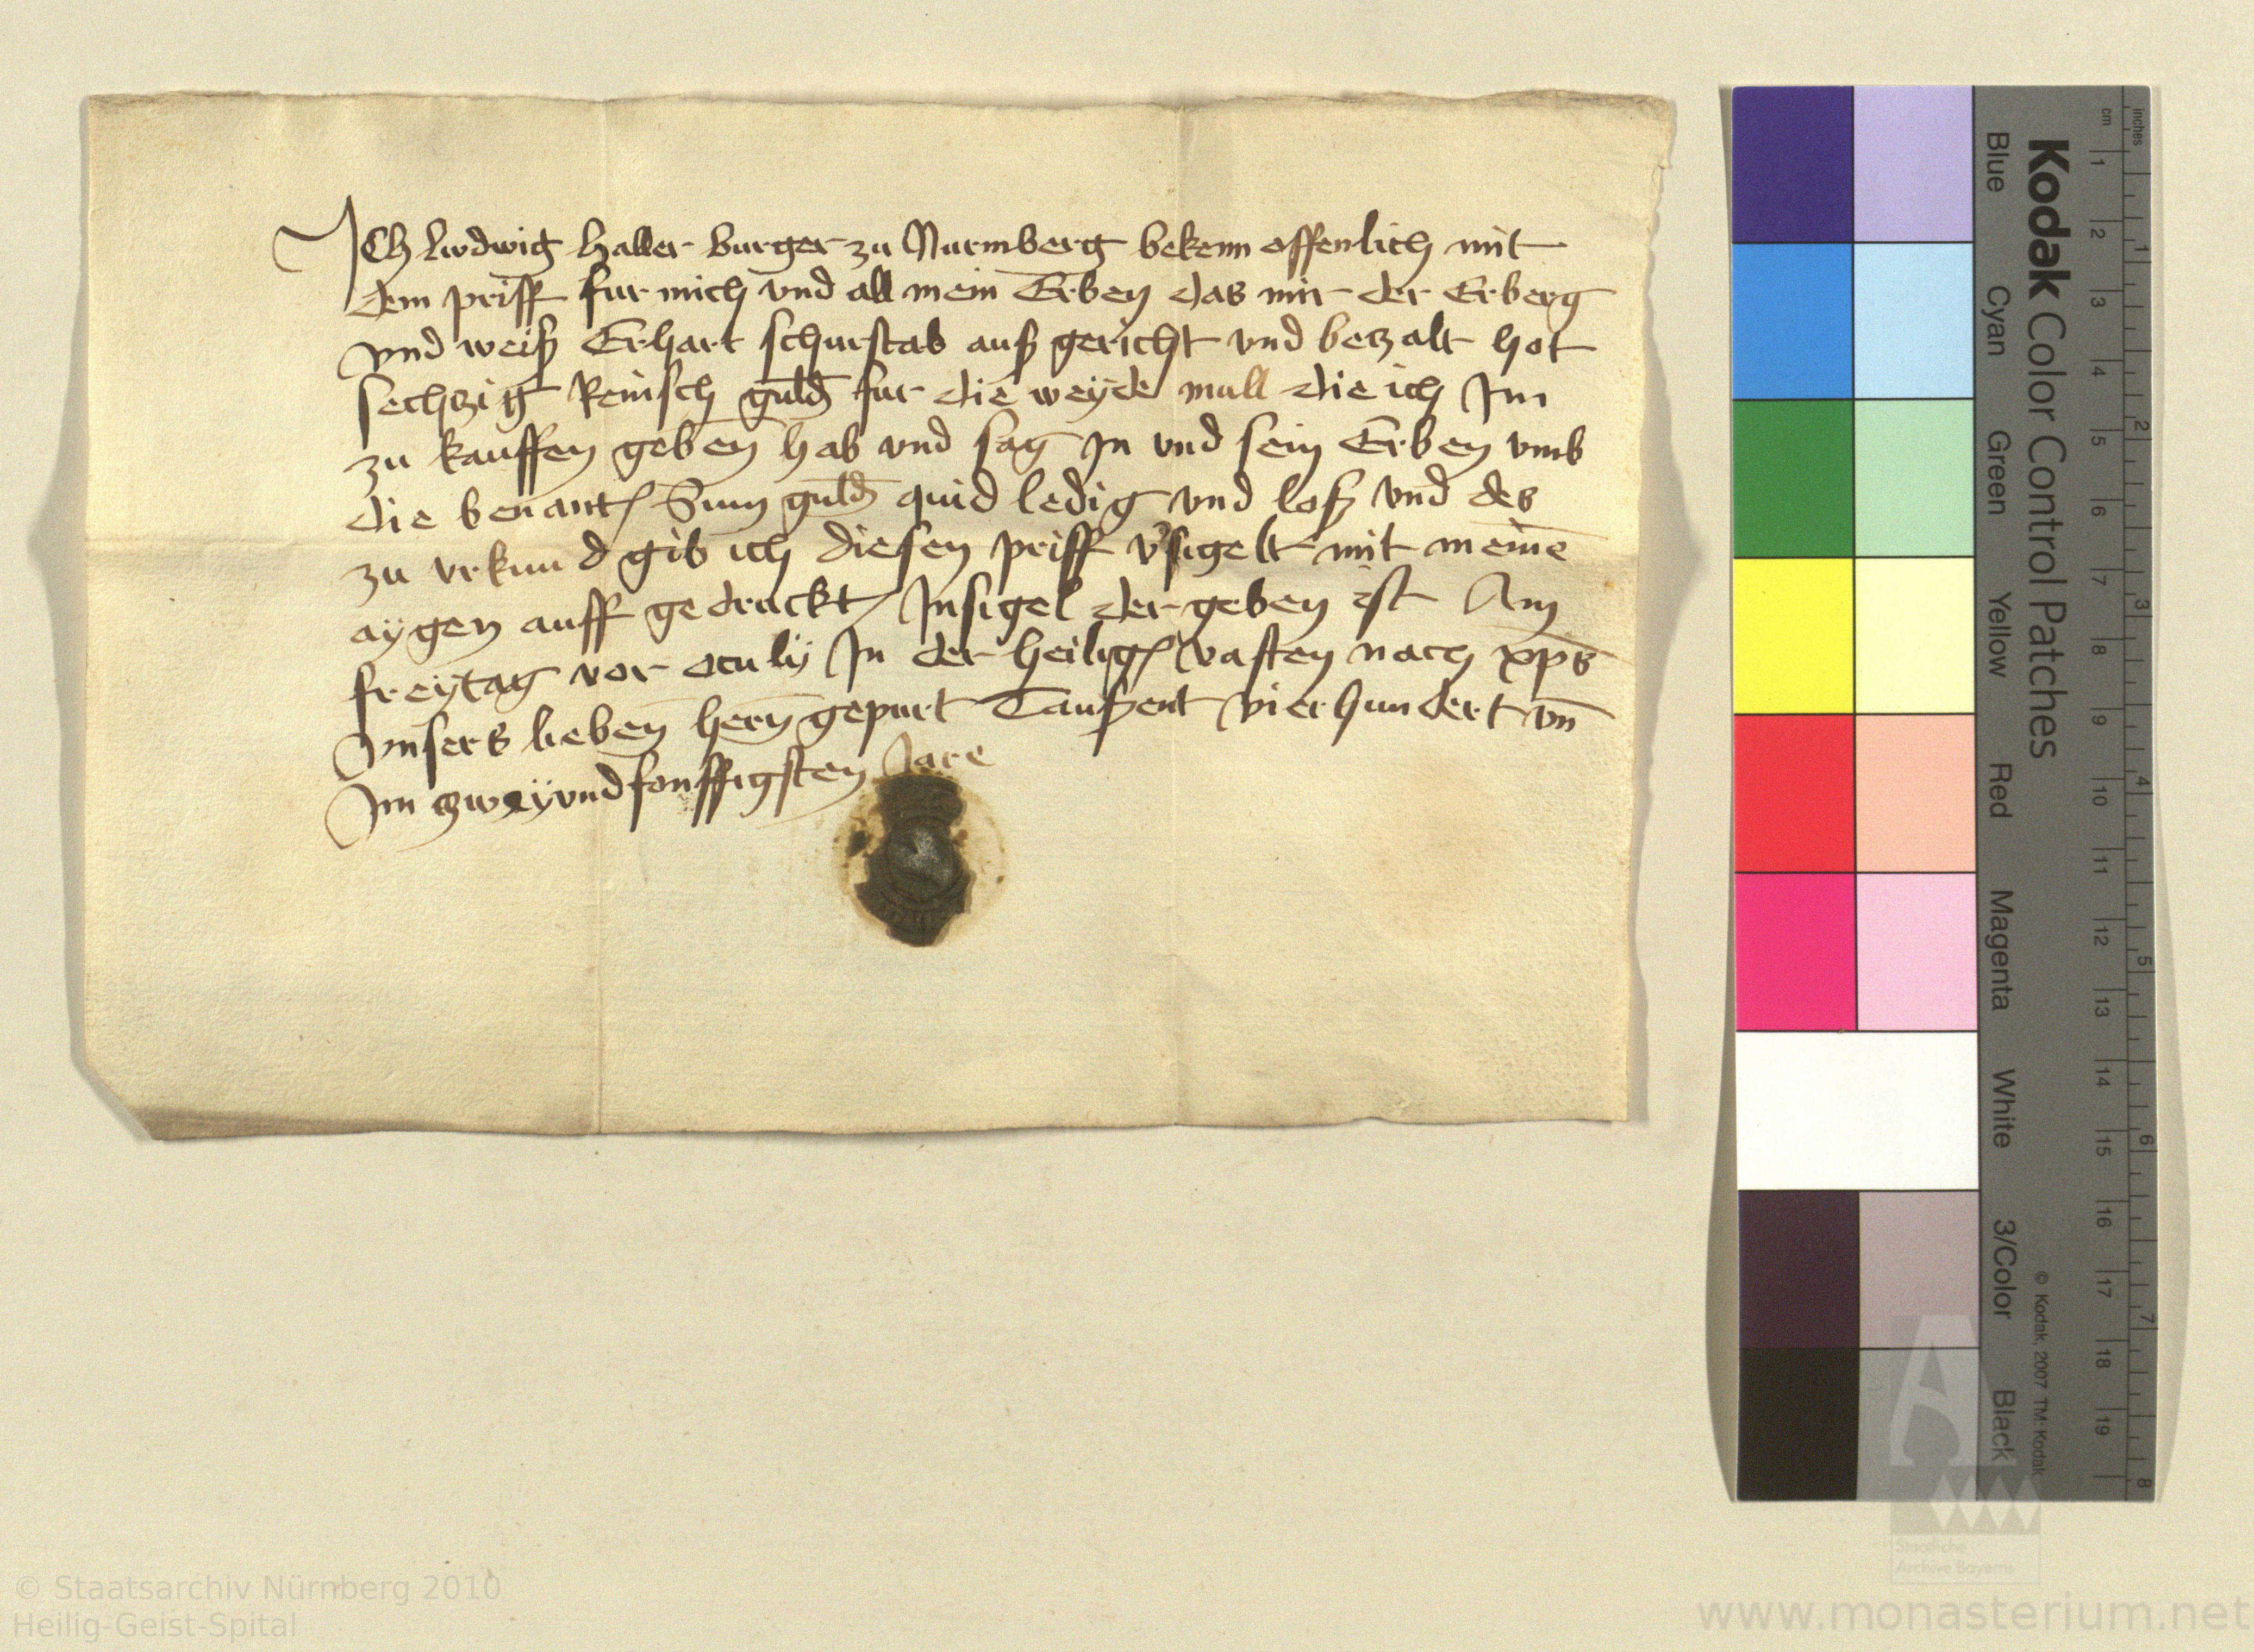 Ich ludwig haller burger zu Nurmberg bekenn offenlich mit
dem priff fur mich vnd all mein Erben das mir der Erberg
vnd weiß Erhart schurstab auß gericht vnd betzalt hot
sechtzig Reinisch guld fur die weyde mull die ich Im
zu kauffen geben hab vnd sag In vnd sein Erben vmb
die benant Sum guld quid ledig vnd loß vnd des
zu vrkund gib ich diesen priff v'sigelt mit meinē
aygen auff gedruckt Insigel der geben ist Am
freytag vor oculy In der heilig vasten nach xp̄s
vnsers lieben hern gepurt Taußent vierhundert vn̄
Im zweyundfonffigsten Jare
Kodak Color Control Patches
Blue Cyan Green Yellow Red Magenta White 3/Color Black
© Kodak, 2007 TM: Kodak
cm 1 2 3 4 5 6 7 8 9 10 11 12 13 14 15 16 17 18 19
inches 1 2 3 4 5 6 7 8
Staatliche
Archive Bayerns
© Staatsarchiv Nürnberg 2010
Heilig-Geist-Spital
www.monasterium.net